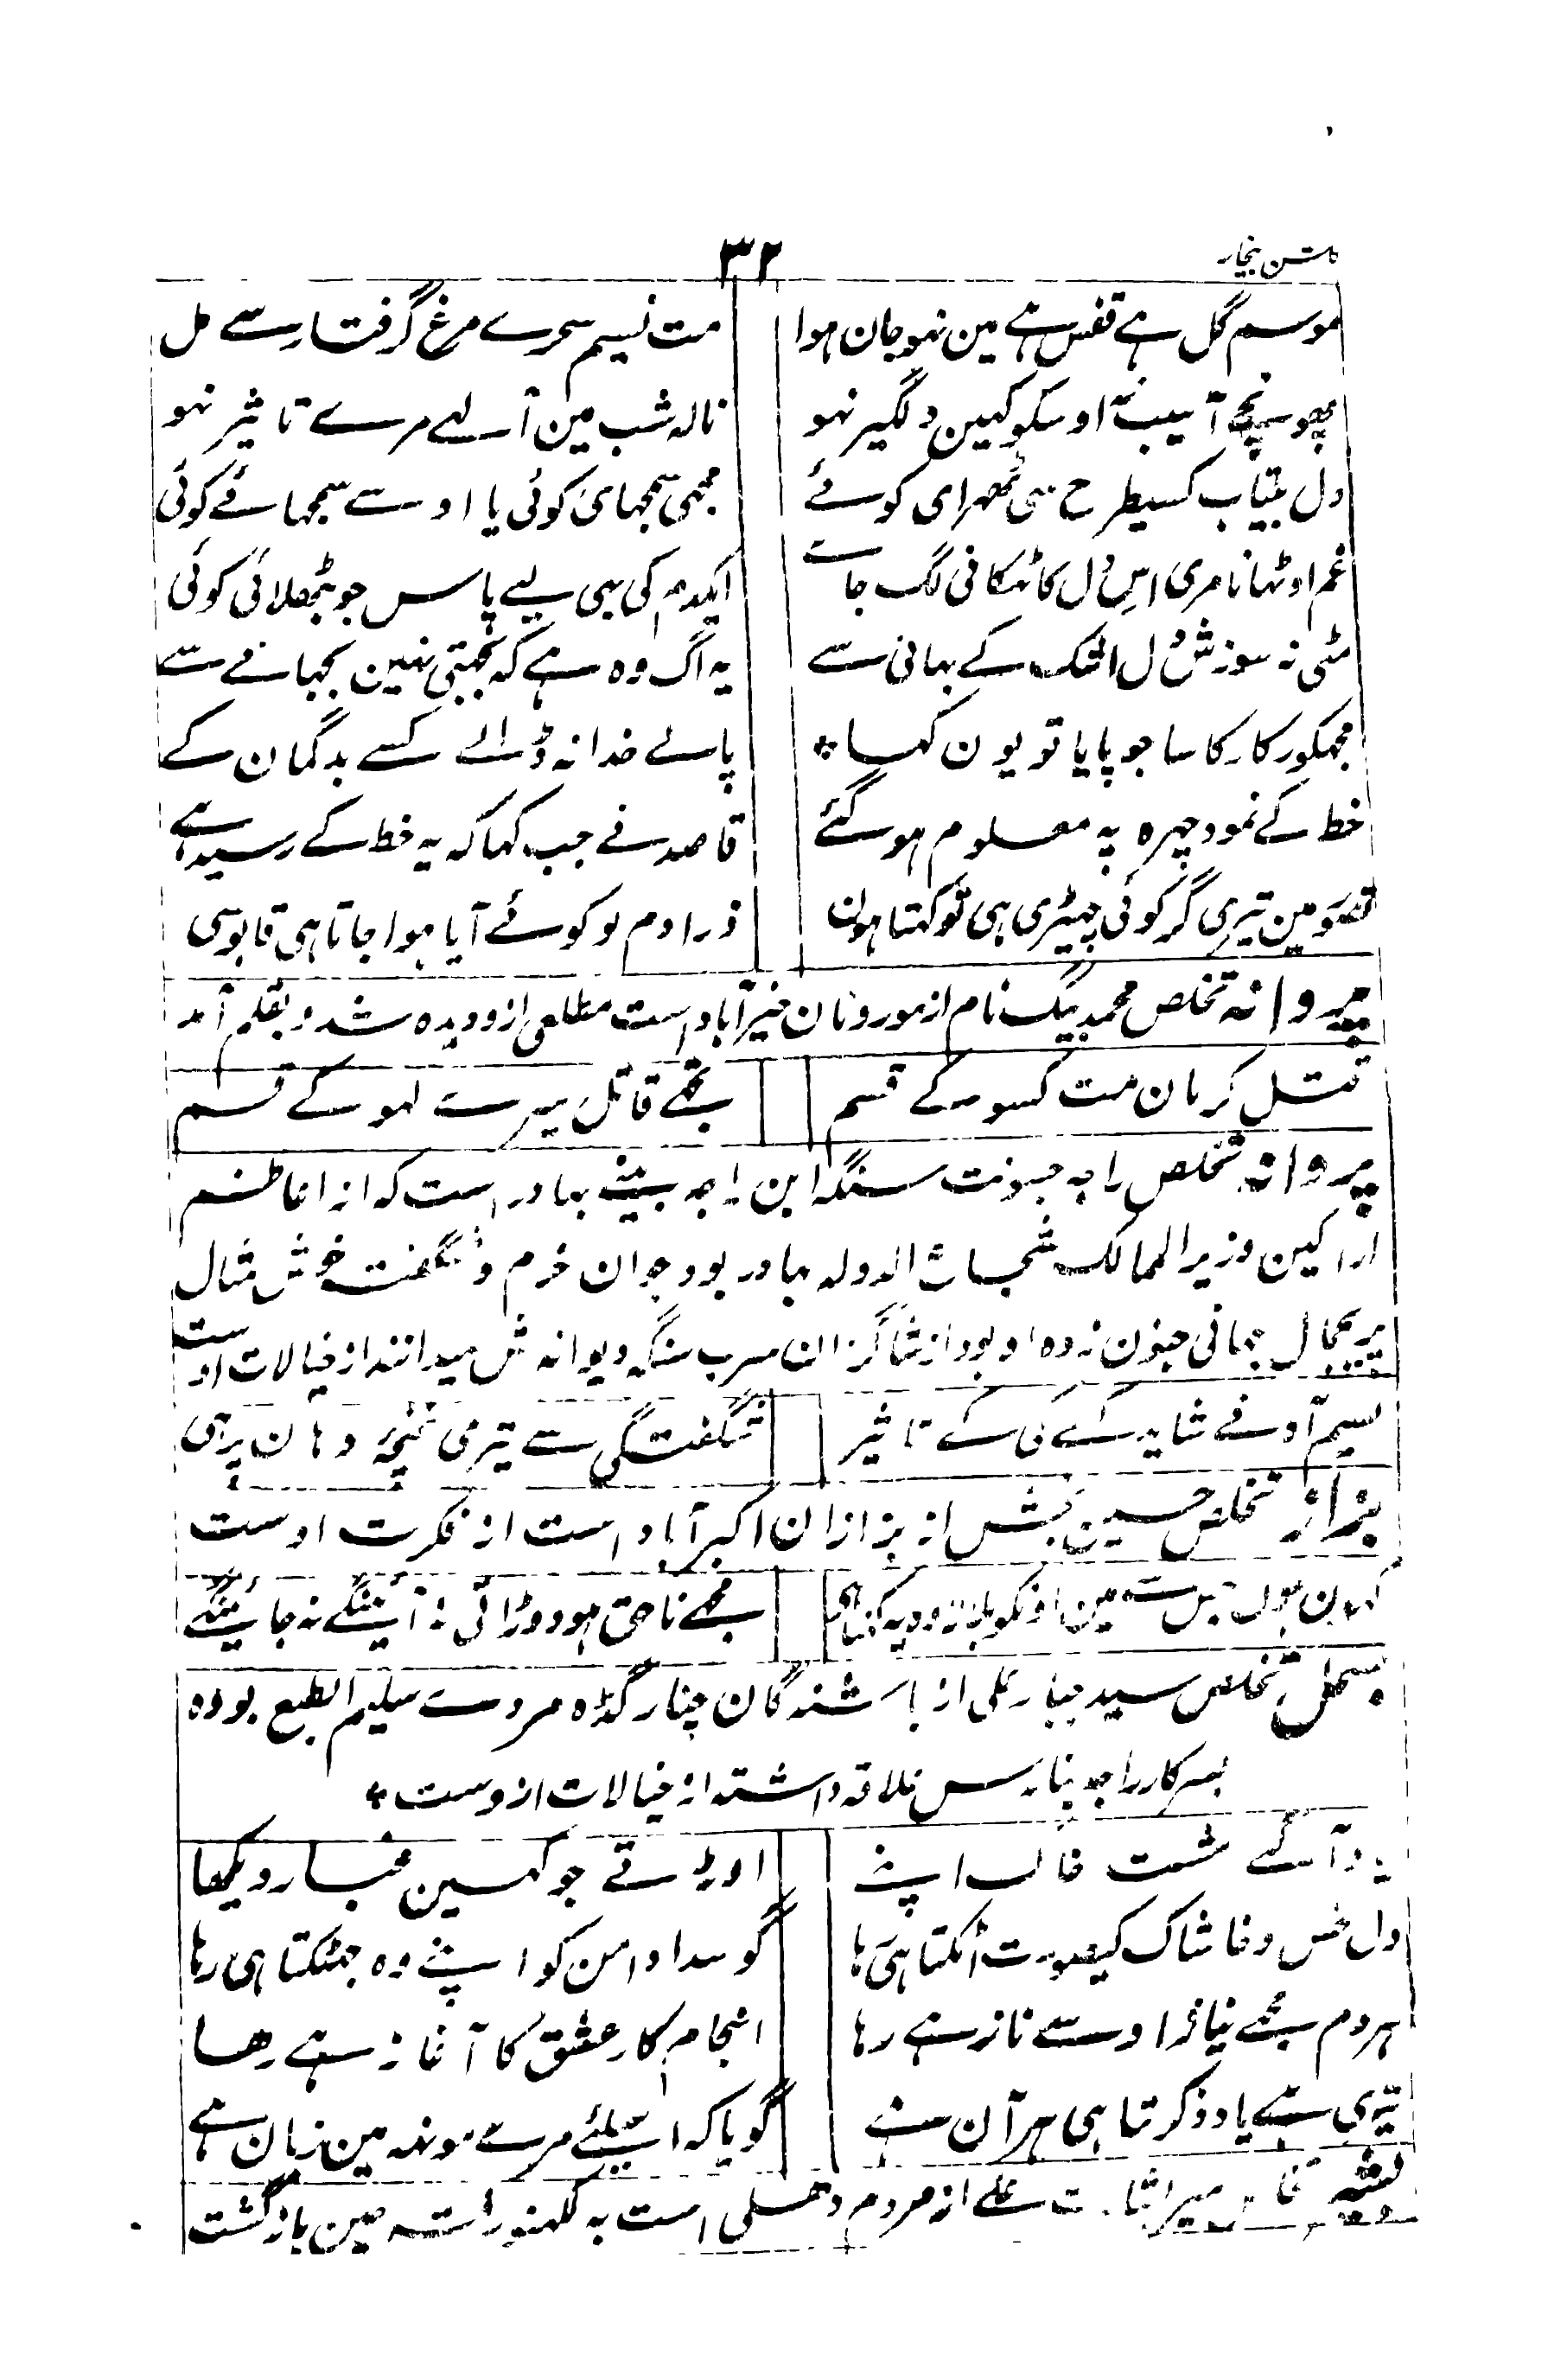 گلشن بیخار
۳۲
موسم گل ہے قفس ہے مین نہو جان ہوا
مت نسیم سحرے مرغ گرفتار سے مل
پھوپنچے آسیب نہ اوسکو کہین دلگیر نہو
نالہ شب مین آلہے مرے تاثیر نہو
دل بیتاب کسیطرح سی ٹھرای کوئے
مجہی سمجہای کوئی یا اوسے سمجہائے کوئی
غم اوٹہانا مری اس دل کا ٹہکانی لگ جاے
ایکدم کی ہی لیے پاس جو بٹھلائی کوئی
مٹی نہ سوزش دل اشک کے بہانی سے
یہ اگ وہ ہے کہ بجہتی نہین بجہانے سے
مجہکو رکا رکا سا جو پایا تو یون کہا *
پالے خدا نہ ڈالے کسے بدگمان کے
خط کے نمود چہرہ پہ معلوم ہو گئے
قاصد نے جب کہا کہ یہ خط کے رسید ہے
تصور مین تیری گر کوئی چہیڑی ہی تو کہتا ہون
ذرا دم لو کوئے آیا ہوا جاتا ہی قابوسی
پروانہ تخلص محمد بیگ نام از موزونان خیرآباد است مطلعی از و دیدہ شد و بقلم آمد
قتل کر مان مت کسو کے قسم
تجھے قاتل میرے لہو کے قسم
پروانہ تخلص راجہ جسونت سنگہ ابن راجہ بینے بہادر است کہ از اعاظم
اراکین وزیر الممالک شجاع الدولہ بہادر بود جوان خرم و شگفت خوش مثال
پریجمال جہانی جنون زدہ او بود از شاگردان سرب سنگہ دیوانہ ش میدانند از خیالات اوست
نسیم آہ نے شاید کے کی کے تاثیر
شگفتگی سے تیری غنچہ دہان پر آئی
بزاز تخلص حسین بخش از بزازان اکبرآباد است از فکرت اوست
کہون ہون جس سے مین اونکو بلا دو وہ یہ کہتا ہی
مجھے ناحق ہو دوڑاتی نہ آئینگے نہ جائینگے
بسمل تخلص سید جبار علی از باشندگان چنار گڈہ مردے سلیم الطبع بودہ
بسرکار راجہ بنارس علاقہ داشتہ از خیالات ازوست *
یاد آگے مشت خاک اپنے
اوڑتے جو کہین غبار دیکھا
دل خس و خاشاک کیصورت اٹکتا ہی رہا
گو سدا دامن کو اپنے وہ جھٹکتا ہی رہا
ہر دم مجھے نیاز اوسے ناز ہے رہا
انجام کار عشق کا آغاز ہے رھا
تیری ہے یاد و ذکر تا ہی ہر آن ہے
گویا کہ اسیلئے مرے مونہہ مین زبان ہے
میر علے از مردم دھلی است بہ لکہنو رفتہ حین بازگشت